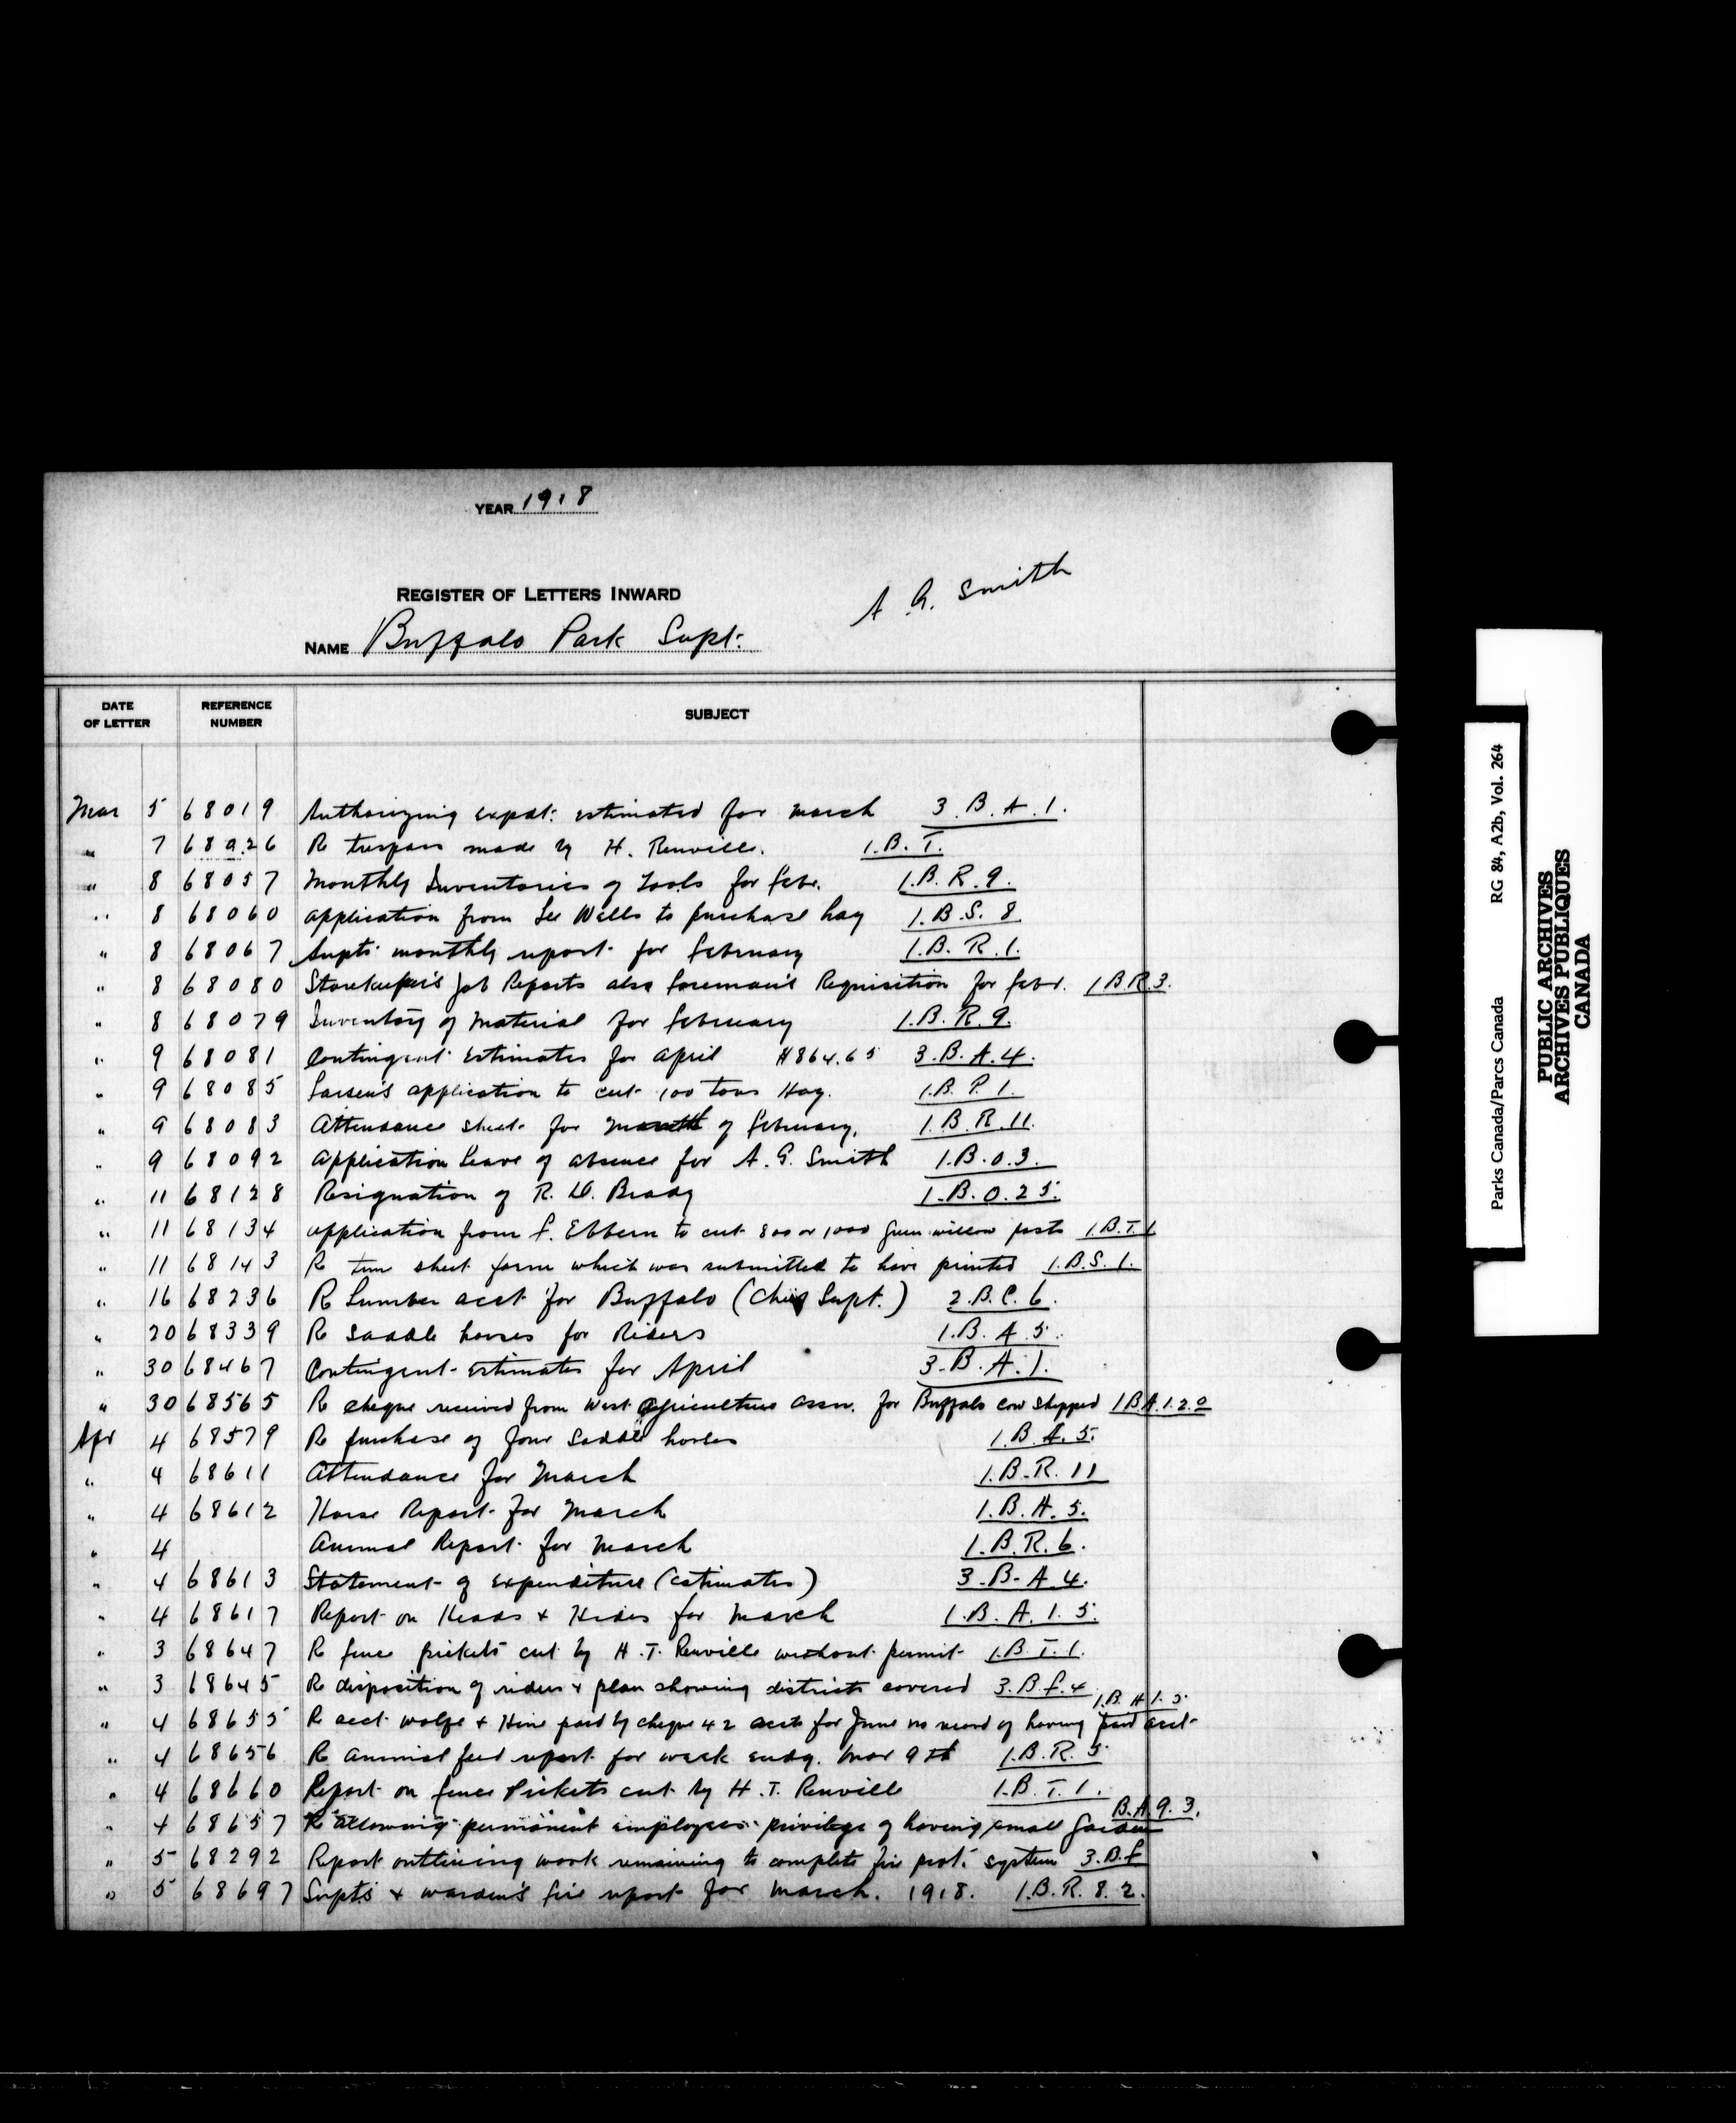 YEAR 1918
REGISTER OF LETTERS INWARD
A G. Smith
NAME Buffalo Park Supt.
DATE OF LETTER REFERENCE NUMBER SUBJECT
Mar 5 68019 Authorizing expdt. estimated for March 3.B.A.1.
" 7 68026 Re trespass made by H. Renville. 1.B.T.
" 8 68057 Monthly Inventories of Tools for Febr. 1.B.R.9.
" 8 68060 Application from Lee Wells to purchase hay 1.B.S.8
" 8 68067 Supts. monthly report for February 1.B.R.1.
" 8 68080 Storekeeper's Job Reports also Foreman's Requisition for Febr. 1.B.R.3.
" 8 68079 Inventory of Material for February 1.B.R.9.
" 9 68081 Contingent Estimates for April $864.65 3.B.A.4.
" 9 68085 Larsen's application to cut 100 tons Hay. 1.B.P.1.
" 9 68083 Attendance sheet for month of February. 1.B.R.11.
" 9 68092 Application Leave of absence for A. G. Smith 1.B.O.3.
" 11 68128 Resignation of R. D. Brady 1.B.O.25.
" 11 68134 Application from F. Ebbern to cut 800 or 1000 green willow posts 1.B.T.1
" 11 68143 Re time sheet form which was submitted to have printed 1.B.S.1.
" 16 68236 Re Lumber acct for Buffalo (Chief Supt.) 2.B.C.6.
" 20 68339 Re Saddle horses for Riders 1.B.A.5.
" 30 68467 Contingent Estimates for April 3.B.A.1.
" 30 68565 Re cheque received from West Agriculture Assn. for Buffalo cow shipped 1.B.A.1.2.0
Apr 4 68579 Re purchase of four Saddle horses 1.B.A.5.
" 4 68611 Attendance for March 1.B.R.11
" 4 68612 Horse Report for March 1.B.H.5.
" 4 Animal Report for March 1.B.R.6.
" 4 68613 Statement of Expenditure (estimates) 3.B.A.4.
" 4 68617 Report on Heads & Hides for March 1.B.A.1.5.
" 3 68647 Re fence pickets cut by H.T. Renville without permit 1.B.T.1.
" 3 68645 Re disposition of riders & plan showing districts covered 3.B.F.4
1.B.H.1.5
" 4 68655 Re acct. Wolfe & Hine paid by cheque 42 accts for June no record of having paid acct
" 4 68656 Re animal feed report for week endg. Mar 9th 1.B.R.5
" 4 68660 Report on fence Pickets cut by H.T. Renville 1.B.T.1.
B.A.9.3.
" 4 68657 Re allowing permanent employees privilege of having small Garden
" 5 68292 Report outlining work remaining to complete fire prot. system 3.B.F
" 5 68697 Supts & warden's fire report for March. 1918. 1.B.R.8.2.
Parks Canada/Parcs Canada RG 84, A2b, Vol. 264
PUBLIC ARCHIVES
ARCHIVES PUBLIQUES
CANADA